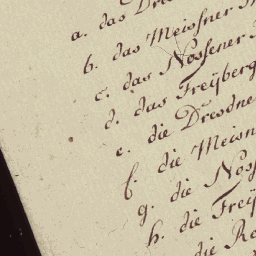 a. das Dre
b. das Meissner
c. das Nossener
d. das Freyberg
e. die Dresdne
f. die Meisn
g. die Noss
h. die Frey
die Re